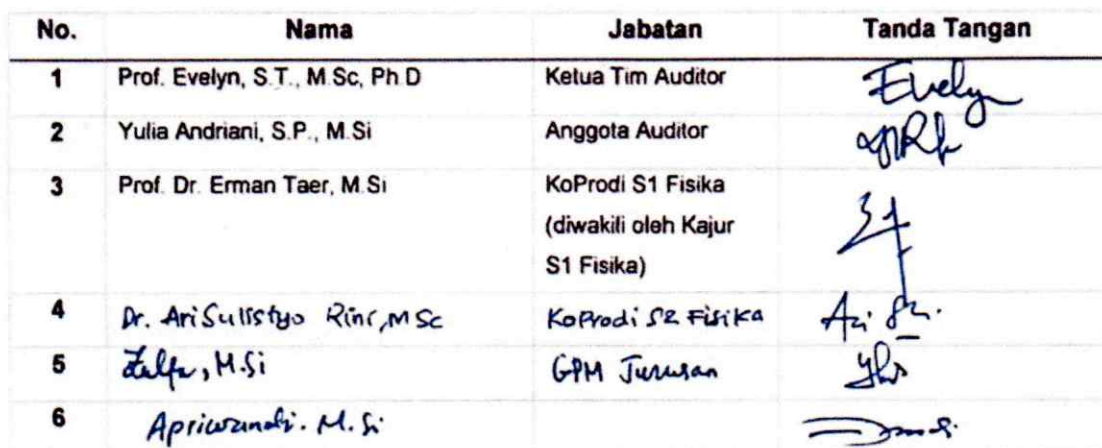 No. Nama Jabatan Tanda Tangan
1 Prof. Evelyn, S.T., M.Sc, Ph.D Ketua Tim Auditor Evelyn
2 Yulia Andriani, S.P., M.Si Anggota Auditor
3 Prof. Dr. Erman Taer, M.Si KoProdi S1 Fisika
(diwakili oleh Kajur
S1 Fisika)
4 Dr. Ari Sulistyo Rini, M Sc KoProdi S2 Fisika
5 Zulfa, M.Si GPM Jurusan
6 Apriwandi. M. Si